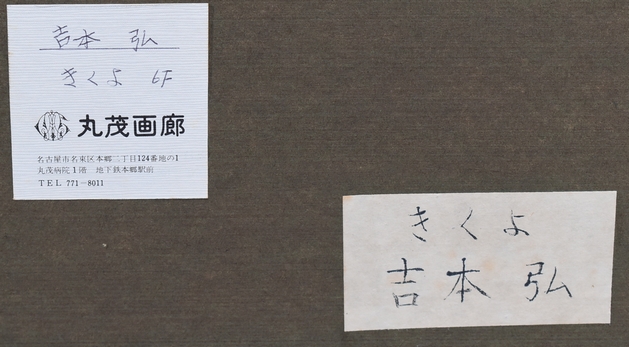 吉本 弘
きくよ 6F
丸茂画廊
名古屋市名東区本郷二丁目124番地の1
丸茂病院1階 地下鉄本郷駅前
TEL 771-8011
きくよ
吉本 弘